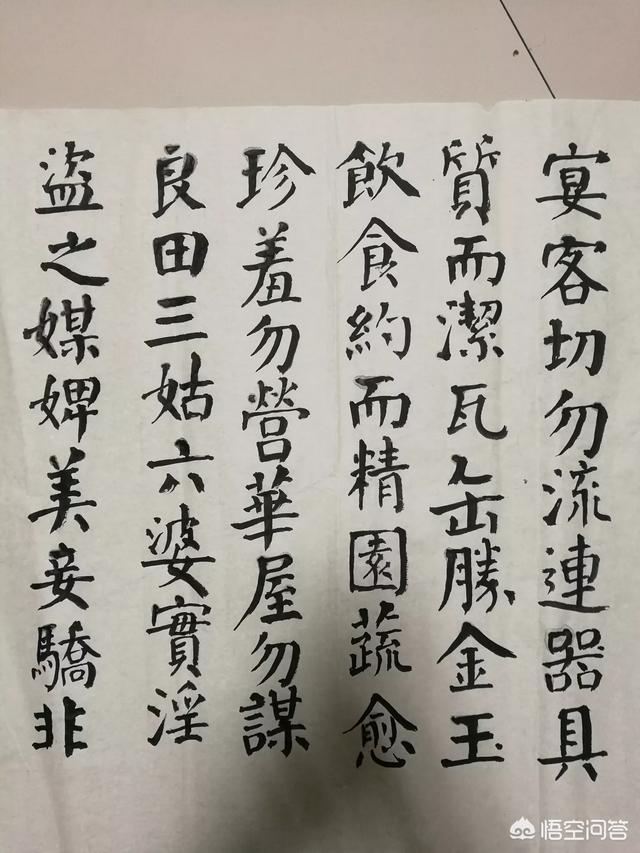 宴客切勿流連器具
質而潔瓦缶勝金玉
飲食約而精園蔬愈
珍羞勿營華屋勿謀
良田三姑六婆實淫
盜之媒婢美妾驕非
悟空问答